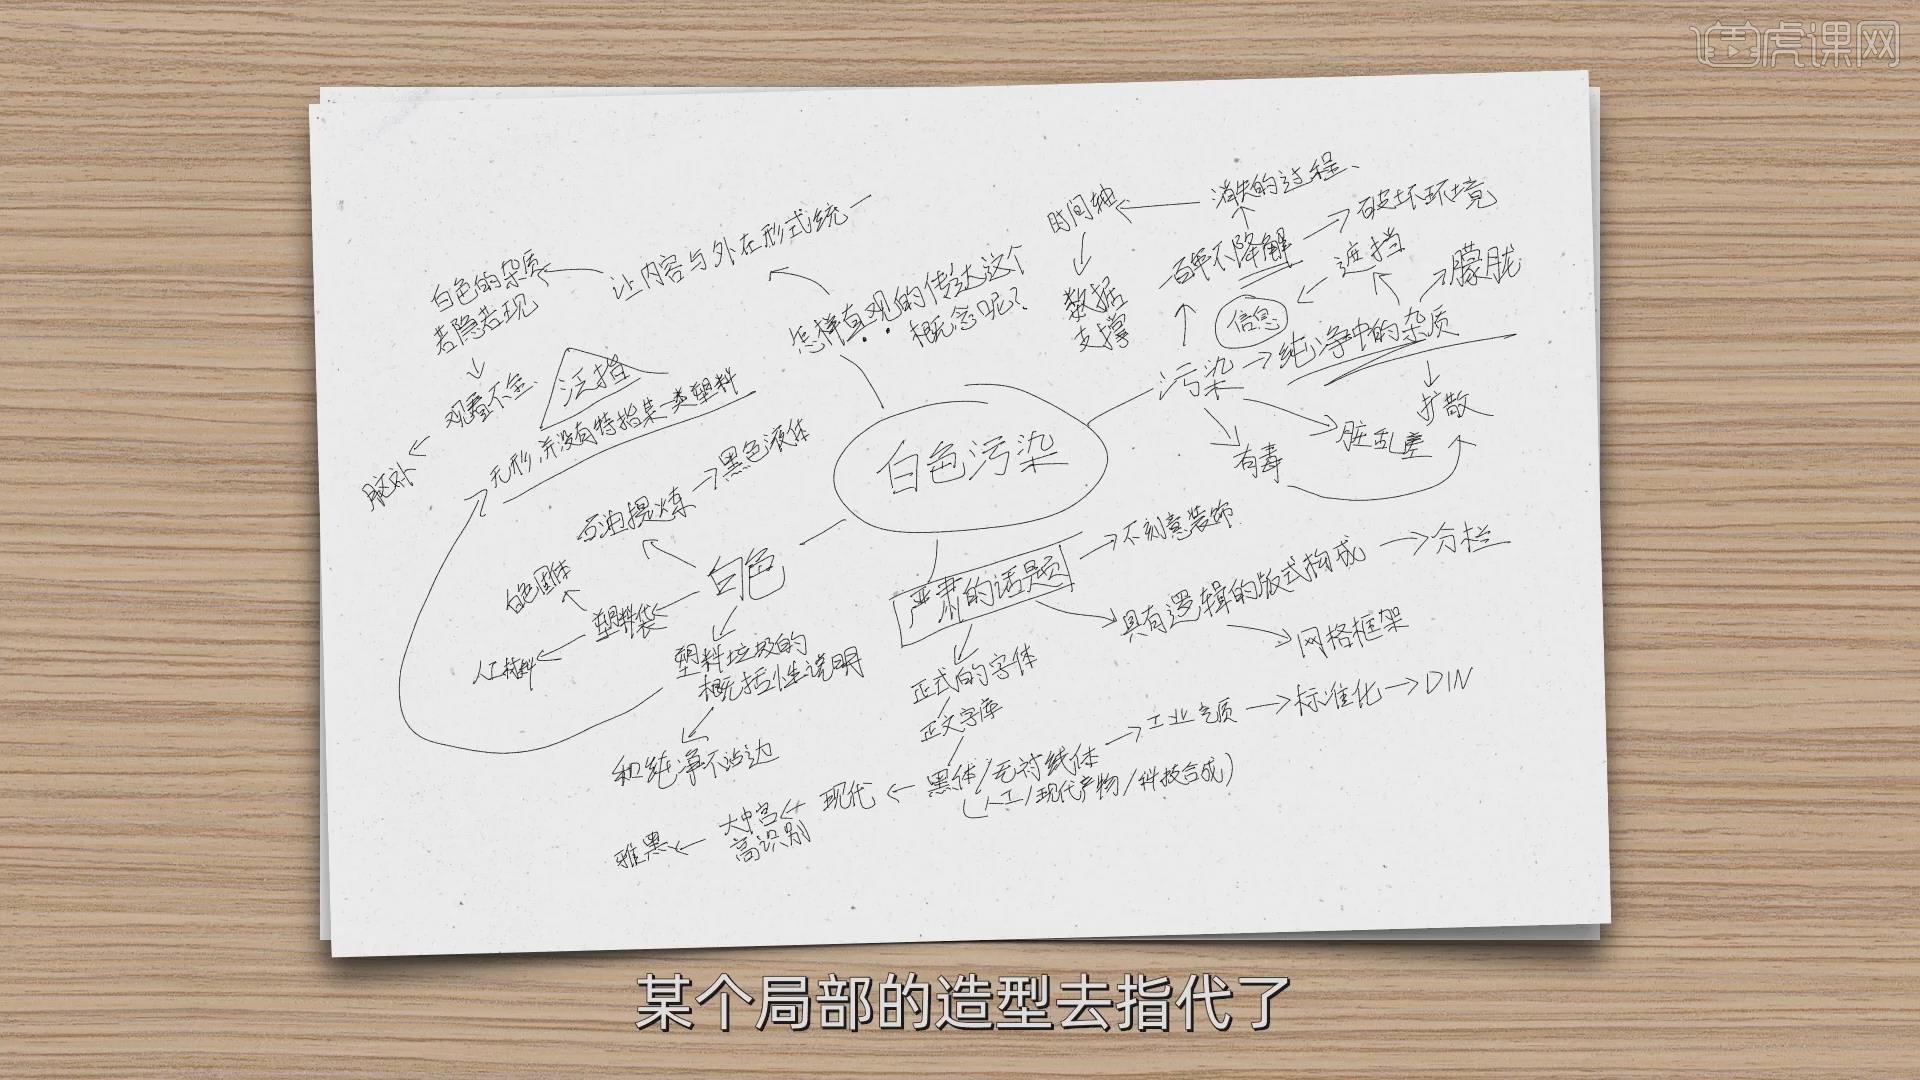 虎课网
消失的过程、
时间轴
破坏环境
百年不降解
遮挡
朦胧
让内容与外在形式统一
白色的杂质
若隐若现
怎样直观的传达这个
概念呢？
数据
支撑
信息
纯净中的杂质
污染
泛指
观看不全
无形，并没有特指某一类塑料
扩散
脏乱差
有毒
脑补
黑色液体
白色污染
石油提炼
不刻意装饰
白色
白色固体
严肃的话题
具有逻辑的版式构成
分栏
塑料袋
网格框架
人工材料
塑料垃圾的
概括性说明
正式的字体
正文字库
工业气质
标准化
DIN
和纯净不沾边
黑体/无衬线体
(人工/现代产物/科技合成)
现代
大中宫
高识别
雅黑
某个局部的造型去指代了